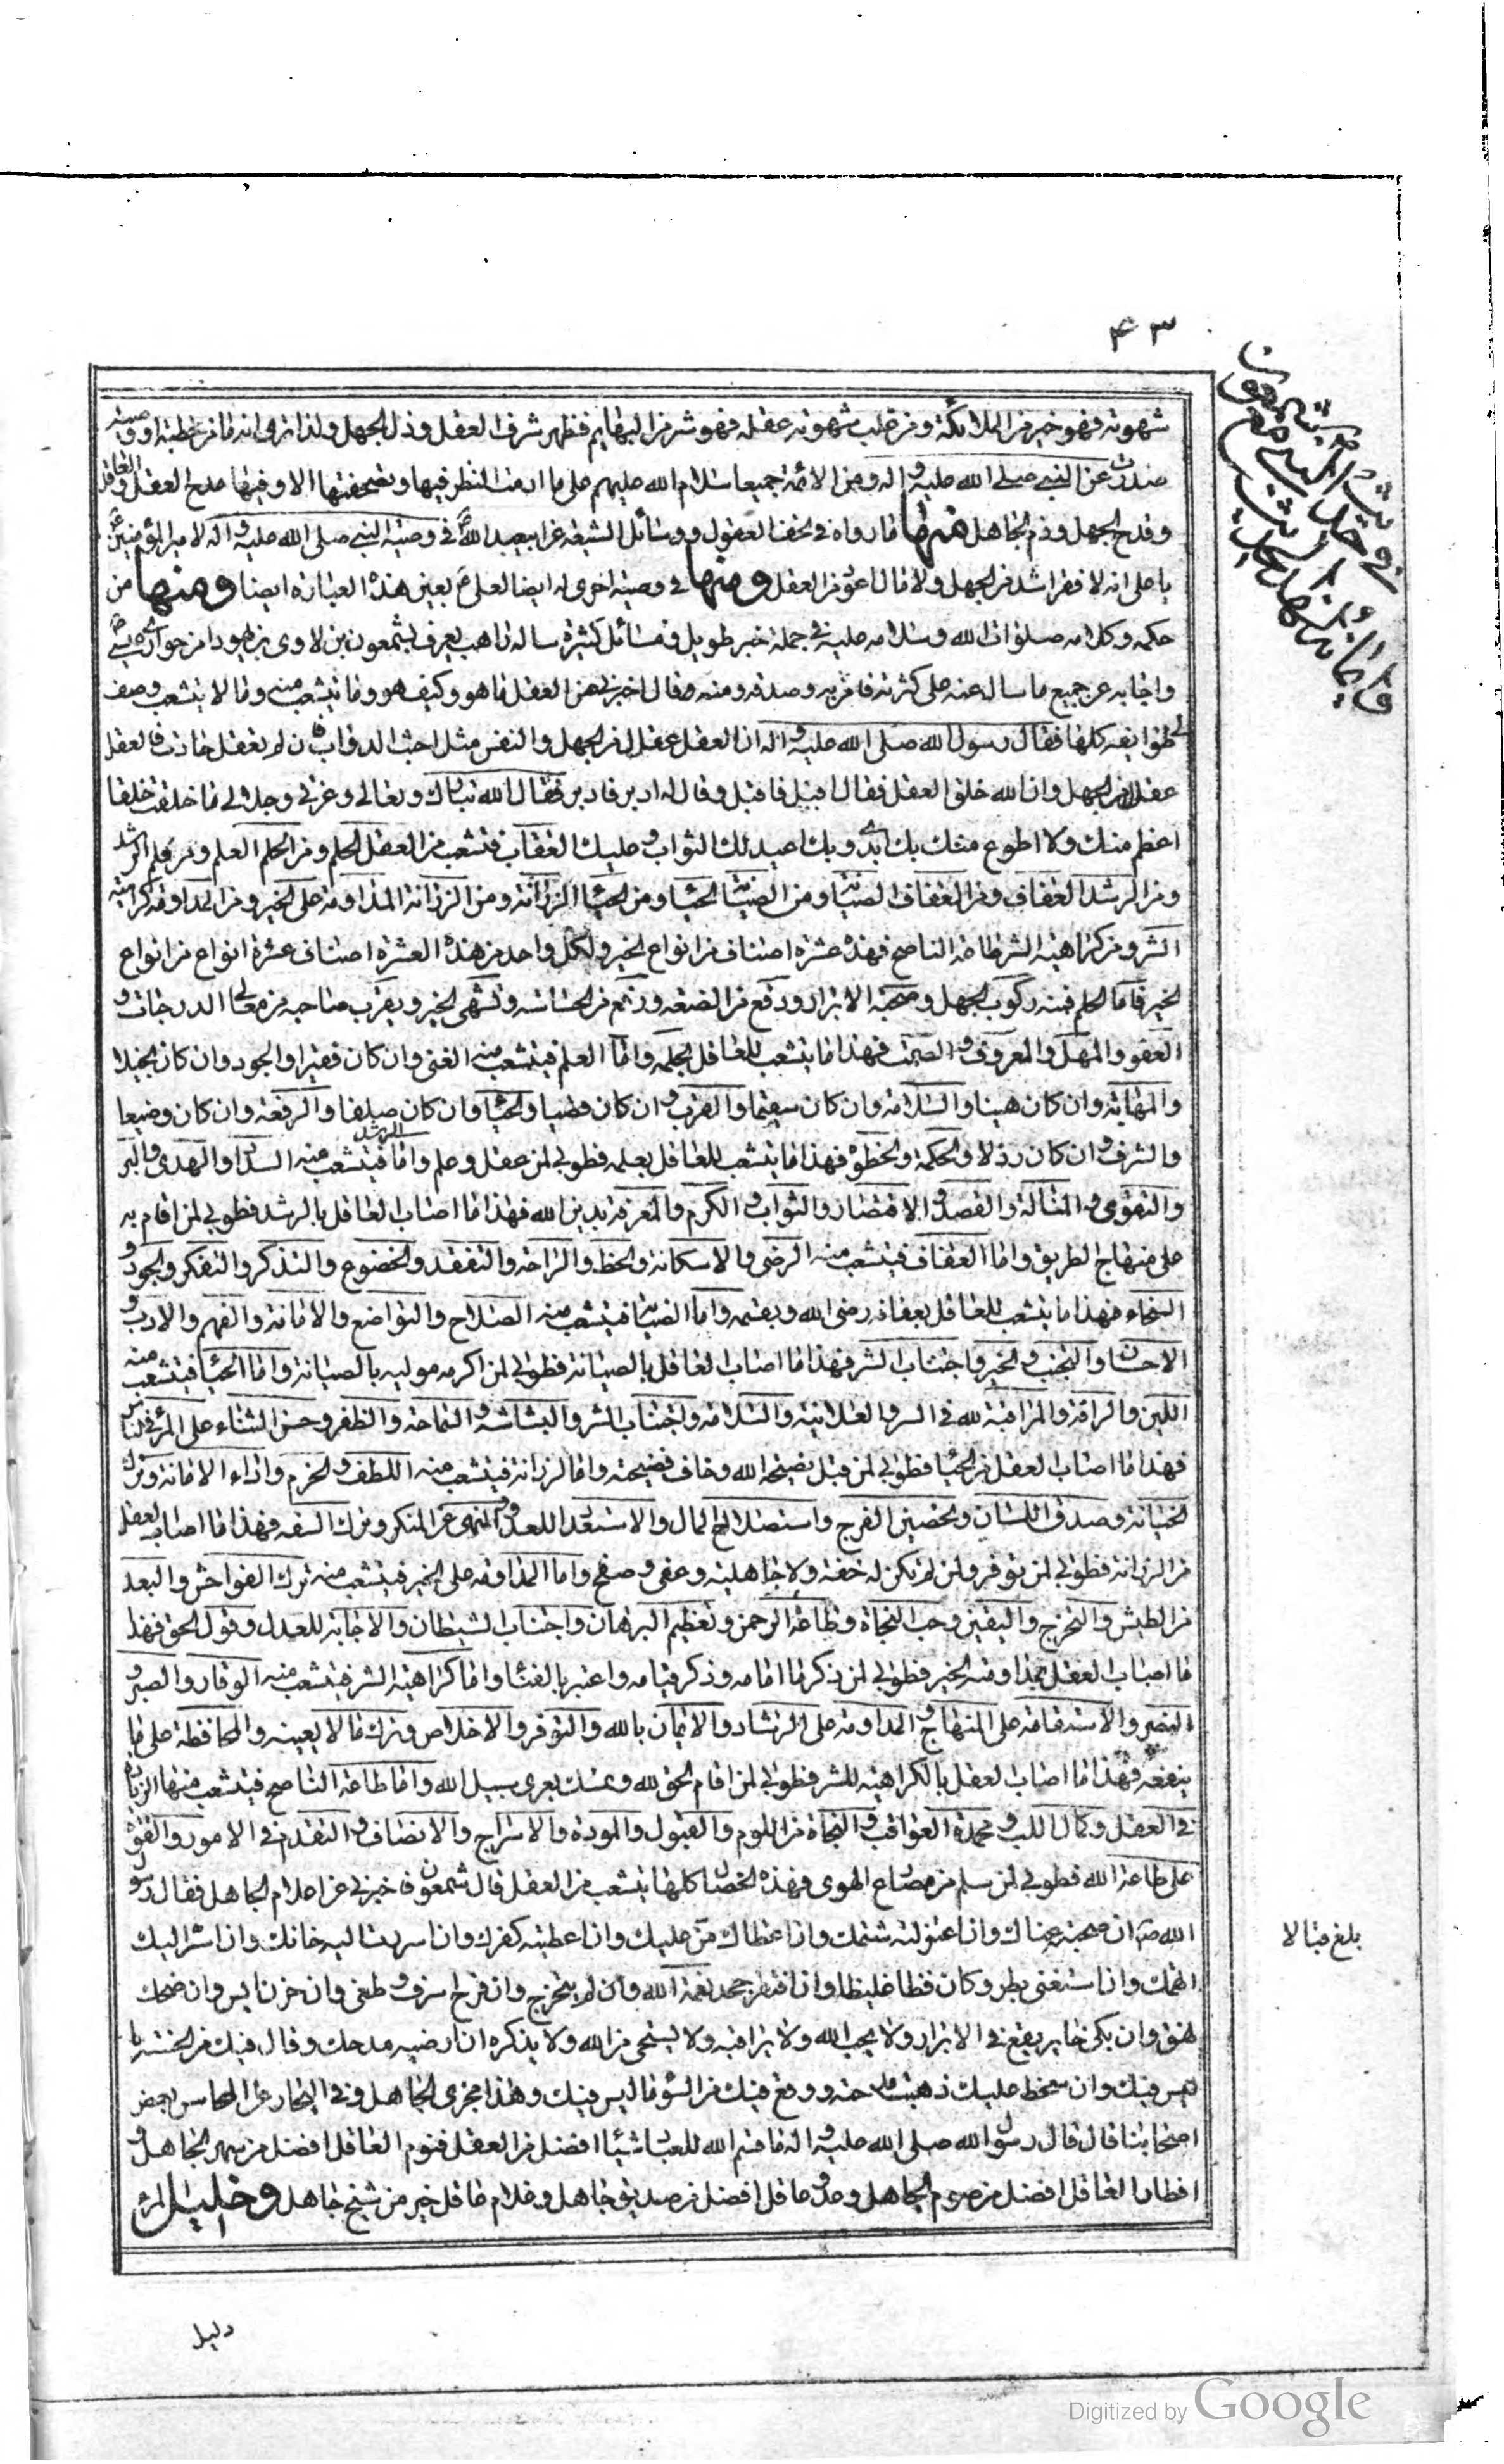 ۴۳
شهوته فهو خير من الملائكة ومن غلب شهوته عقله فهو شر من البهايم فظهر شرف العقل وذل الجهل ولذا نرى انه ما من خطبة او وصية
صدرت عن النبي صلى الله عليه و اله ومن الائمة جميعا سلام الله عليهم على ما ادمت النظر فيها وتصفحتها الا وفيها مدح العقل والعاقل
وقدح الجهل وذم الجاهل فمنها ما رواه في تحف العقول ووسائل الشيعة عن ابيعبد الله ع في وصية النبي صلى الله عليه و اله لامير المؤمنين ع
يا على انه لا فقر اشد من الجهل ولا مال اعود من العقل ومنها في وصية اخرى له ايضا لعلى ع بعين هذه العبارة ايضا ومنها من
حكمه وكلامه صلوات الله وسلامه عليه في جملة خبر طويل ومسائل كثيرة ساله راهب يعرف بشمعون بن لاوى بن يهودا من حوارى عيسى
واجابه عن جميع ما سال عنه على كثرته فامن به وصدقه ومنه وقال اخبرنى عن العقل ما هو وكيف هو وما يتشعب منه وما لا يتشعب وصف
لى طوايفه كلها فقال رسول الله صلى الله عليه و اله ان العقل عقال من الجهل والنفس مثل اخبث الدواب فان لم يعقل حارت فالعقل
عقال من الجهل وان الله خلق العقل فقال اقبل فاقبل وقال له ادبر فادبر فقال الله تبارك وتعالى وعزتى وجلالى ما خلقت خلقا
اعظم منك ولا اطوع منك بك ابدى وبك اعيد لك الثواب و عليك العقاب فتشعب من العقل الحلم ومن الحلم العلم ومن العلم الرشد
ومن الرشد العفاف ومن العفاف الصيانة ومن الصيانة الحياء ومن الحياء الرزانة ومن الرزانة المداومة على الخير ومن المداومة كراهية
الشر ومن كراهية الشر طاعة الناصح فهذه عشرة اصناف من انواع الخير ولكل واحد من هذه العشرة اصناف عشرة انواع من انواع
الخير فاما الحلم فمنه ركوب الجهل وصحبة الابرار ورفع من الضعة ورفع من الخساسة وتشهى الخير ويقرب صاحبه من معالى الدرجات و
العفو والمهل والمعروف و الصمت فهذا ما يتشعب للعاقل بحلمه واما العلم فيتشعب منه الغنى وان كان فقيرا والجود وان كان بخيلا
والمهابة وان كان هينا والسلامة وان كان سقيما والقرب و ان كان قصيا والحياء وان كان صلفا والرفعة وان كان وضيعا
والشرف و ان كان رذلا والحكمة والحظوة فهذا ما يتشعب للعاقل بعلمه فطوبى لمن عقل وعلم واما الرشد فيتشعب منه السداد والهدى والبر
والتقوى و المنالة والقصد و الاقتصاد والثواب و الكرم والمعرفة بدين الله فهذا ما اصاب العاقل بالرشد فطوبى لمن اقام به
على منهاج الطريق واما العفاف فيتشعب منه الرضى والاستكانة والحظ والراحة والتفقد والخضوع والتذكر والتفكر والجود و
السخاء فهذا ما يتشعب للعاقل بعفافه رضى الله وبقسمه واما الصيانة فيتشعب منه الصلاح والتواضع والامانة والفهم والادب و
الاحسان والتحبب و الخير واجتناب الشر فهذا ما اصاب العاقل بالصيانة فطوبى لمن اكرمه موليه بالصيانة واما الحياء فيتشعب منه
اللين والرافة والمراقبة لله في السر والعلانية والسلامة واجتناب الشر والبشاشة و السماحة والظفر وحسن الثناء على المرء في الناس
فهذا ما اصاب العقل من الحياء فطوبى لمن قبل نصيحة الله وخاف فضيحته واما الرزانة فيتشعب منه اللطف و الحزم واداء الامانة وترك
الخيانة وصدق اللسان وتحصين الفرج واستصلاح المال والاستعداد للعدو والنهى عن المنكر وترك السفه فهذا ما اصاب العقل
من الرزانة فطوبى لمن توقر ولمن لم تكن له خفة ولا جاهلية وعفى و صفح واما المداومة على الخير فيتشعب منه ترك الفواحش والبعد
من الطيش والتحرج واليقين وحب النجاة وطاعة الرحمن وتعظيم البرهان واجتناب الشيطان والاجابة للعدل وقول الحق فهذا
ما اصاب العقل بمداومة الخير فطوبى لمن ذكر ما امامه وذكر قيامه واعتبر بالفناء واما كراهية الشر فيتشعب منه الوقار والصبر و
النصر والاستقامة على المنهاج و المداومة على الرشاد والايمان بالله والتوفر والاخلاص وترك ما لا يعنيه والمحافظة على ما
ينفعه فهذا ما اصاب العقل بالكراهية للشر فطوبى لمن اقام الحق لله وتمسك بعرى سبيل الله واما طاعة الناصح فيتشعب منها الزيادة
في العقل وكمال اللب و محمدة العواقب و النجاة من اللوم والقبول والمودة والاسراج والانصاف و التقدم في الامور والقوة
على طاعة الله فطوبى لمن سلم من مصارع الهوى فهذه الخصال كلها يتشعب من العقل قال شمعون فاخبرنى عن اعلام الجاهل فقال رسول
الله ص ان صحبته عناك وان اعتزلته شتمك وان اعطاك من عليك وان اعطيته كفرك وان اسررت اليه خانك وان اسر اليك
اتهمك وان استغنى بطر وكان فظا غليظا وان افتقر جحد نعمة الله ولم يتحرج وان فرح اسرف و طغى وان حزن ايس وان ضحك
فهق وان بكى خار يقع في الابرار ولا يحب الله ولا يراقبه ولا يستحى من الله ولا يذكره ان ارضيه مدحك وقال فيك من الحسنة ما
ليس فيك وان سخط عليك ذهبت مدحته ووقع فيك من السوء ما ليس فيك وهذا مجرى الجاهل وفي البحار عن المحاسن بعض
اصحابنا قال قال رسول الله صلى الله عليه و اله ما قسم الله للعباد شيئا افضل من العقل فنوم العاقل افضل من سهر الجاهل و
افطار العاقل افضل من صوم الجاهل وعدو عاقل افضل من صديق جاهل وغلام عاقل خير من شيخ جاهل و
بلغ قبالا
دليل
Digitized by Google